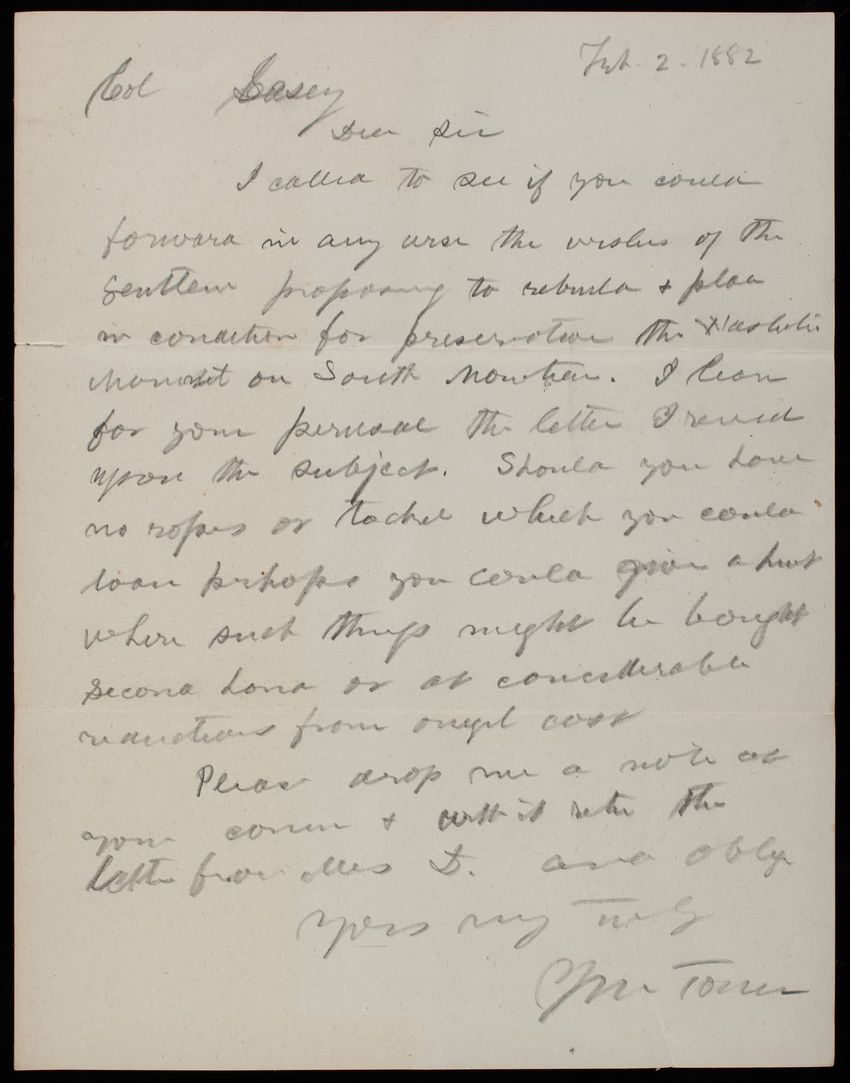 Feb. 2. 1882
Col Casey
Dear Sir
I called to see if you could
forward in any wise the wishes of the
gentlem proposing to rebuild & place
in condition for preservation the Washington
Monument on South Mountain. I leave
for your perusal the letter I received
upon the subject. Should you have
no ropes or tackel which you could
loan perhaps you could give a hint
where such things might be bought
second hand or at considerable
reductions from origl cost
Please drop me a note at
your conven & with it retn the
letter from Mrs D. and oblige
Yours very truly